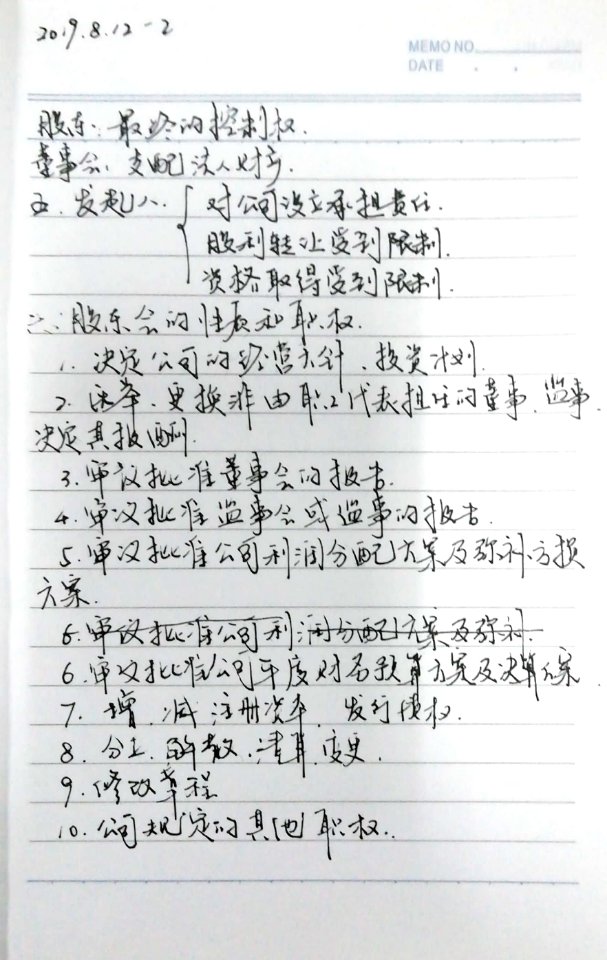 2019.8.12-2
MEMO NO.
DATE . .
股东:最终的控制权.
董事会:支配法人财产.
五.发起人. 对公司设立承担责任.
股利转让受到限制.
资格取得受到限制.
六.股东会的性质和职权.
1.决定公司的经营方针、投资计划.
2.选举、更换非由职工代表担任的董事、监事.
决定其报酬.
3.审议批准董事会的报告.
4.审议批准监事会或监事的报告.
5.审议批准公司利润分配方案及弥补亏损
方案.
6.审议批准公司利润分配方案及弥补.
6.审议批准公司年度财务预算方案及决算方案
7.增、减注册资本、发行债权.
8.分立、解散、清算、变更.
9.修改章程
10.公司规定的其他职权.